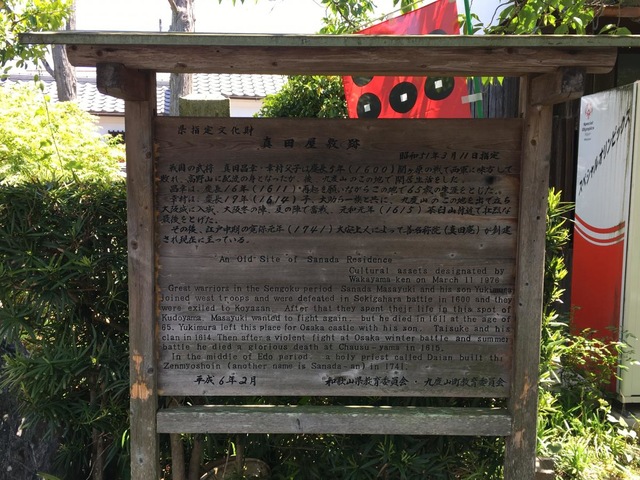 県指定文化財 真田屋敷跡
昭和51年3月11日指定
戦国の武将 真田昌幸・幸村父子は慶長5年(1600)関ヶ原の戦で西軍に味方して
敗れ、高野山に配流の身となったが、後、九度山のこの地で閑居生活をした。
昌幸は、慶長16年(1611)再起を願いながらこの地で65歳の生涯をとじた。
幸村は、慶長19年(1614)子、大助ら一族と共に、九度山のこの地を出で立ち
大阪城に入城、大阪冬の陣、夏の陣で奮戦、元和元年(1615)茶臼山附近で壮烈な
最後をとげた。
その後、江戸中期の寛保元年(1741)大安上人によって、善名称院(真田庵)が創建
され現在に至っている。
An Old Site of Sanada Residence
Cultural assets designated by
Wakayama-ken on March 11 1976
Great warriors in the Sengoku period Sanada Masayuki and his son Yukimura
joined west troops and were defeated in Sekigahara battle in 1600 and they
were exiled to Koyasan. After that they spent their life in this spot of
Kudoyama. Masayuki wanted to fight again, but he died in 1611 at the age of
65. Yukimura left this place for Osaka castle with his son, Taisuke and his
clan in 1614. Then after a violent fight at Osaka winter battle and summer
battle, he died a glorious death at Chausu-yama in 1615.
In the middle of Edo period, a holy priest called Daian built the
Zenmyoshoin (another name is Sanada an) in 1741.
平成6年2月 和歌山県教育委員会・九度山町教育委員会